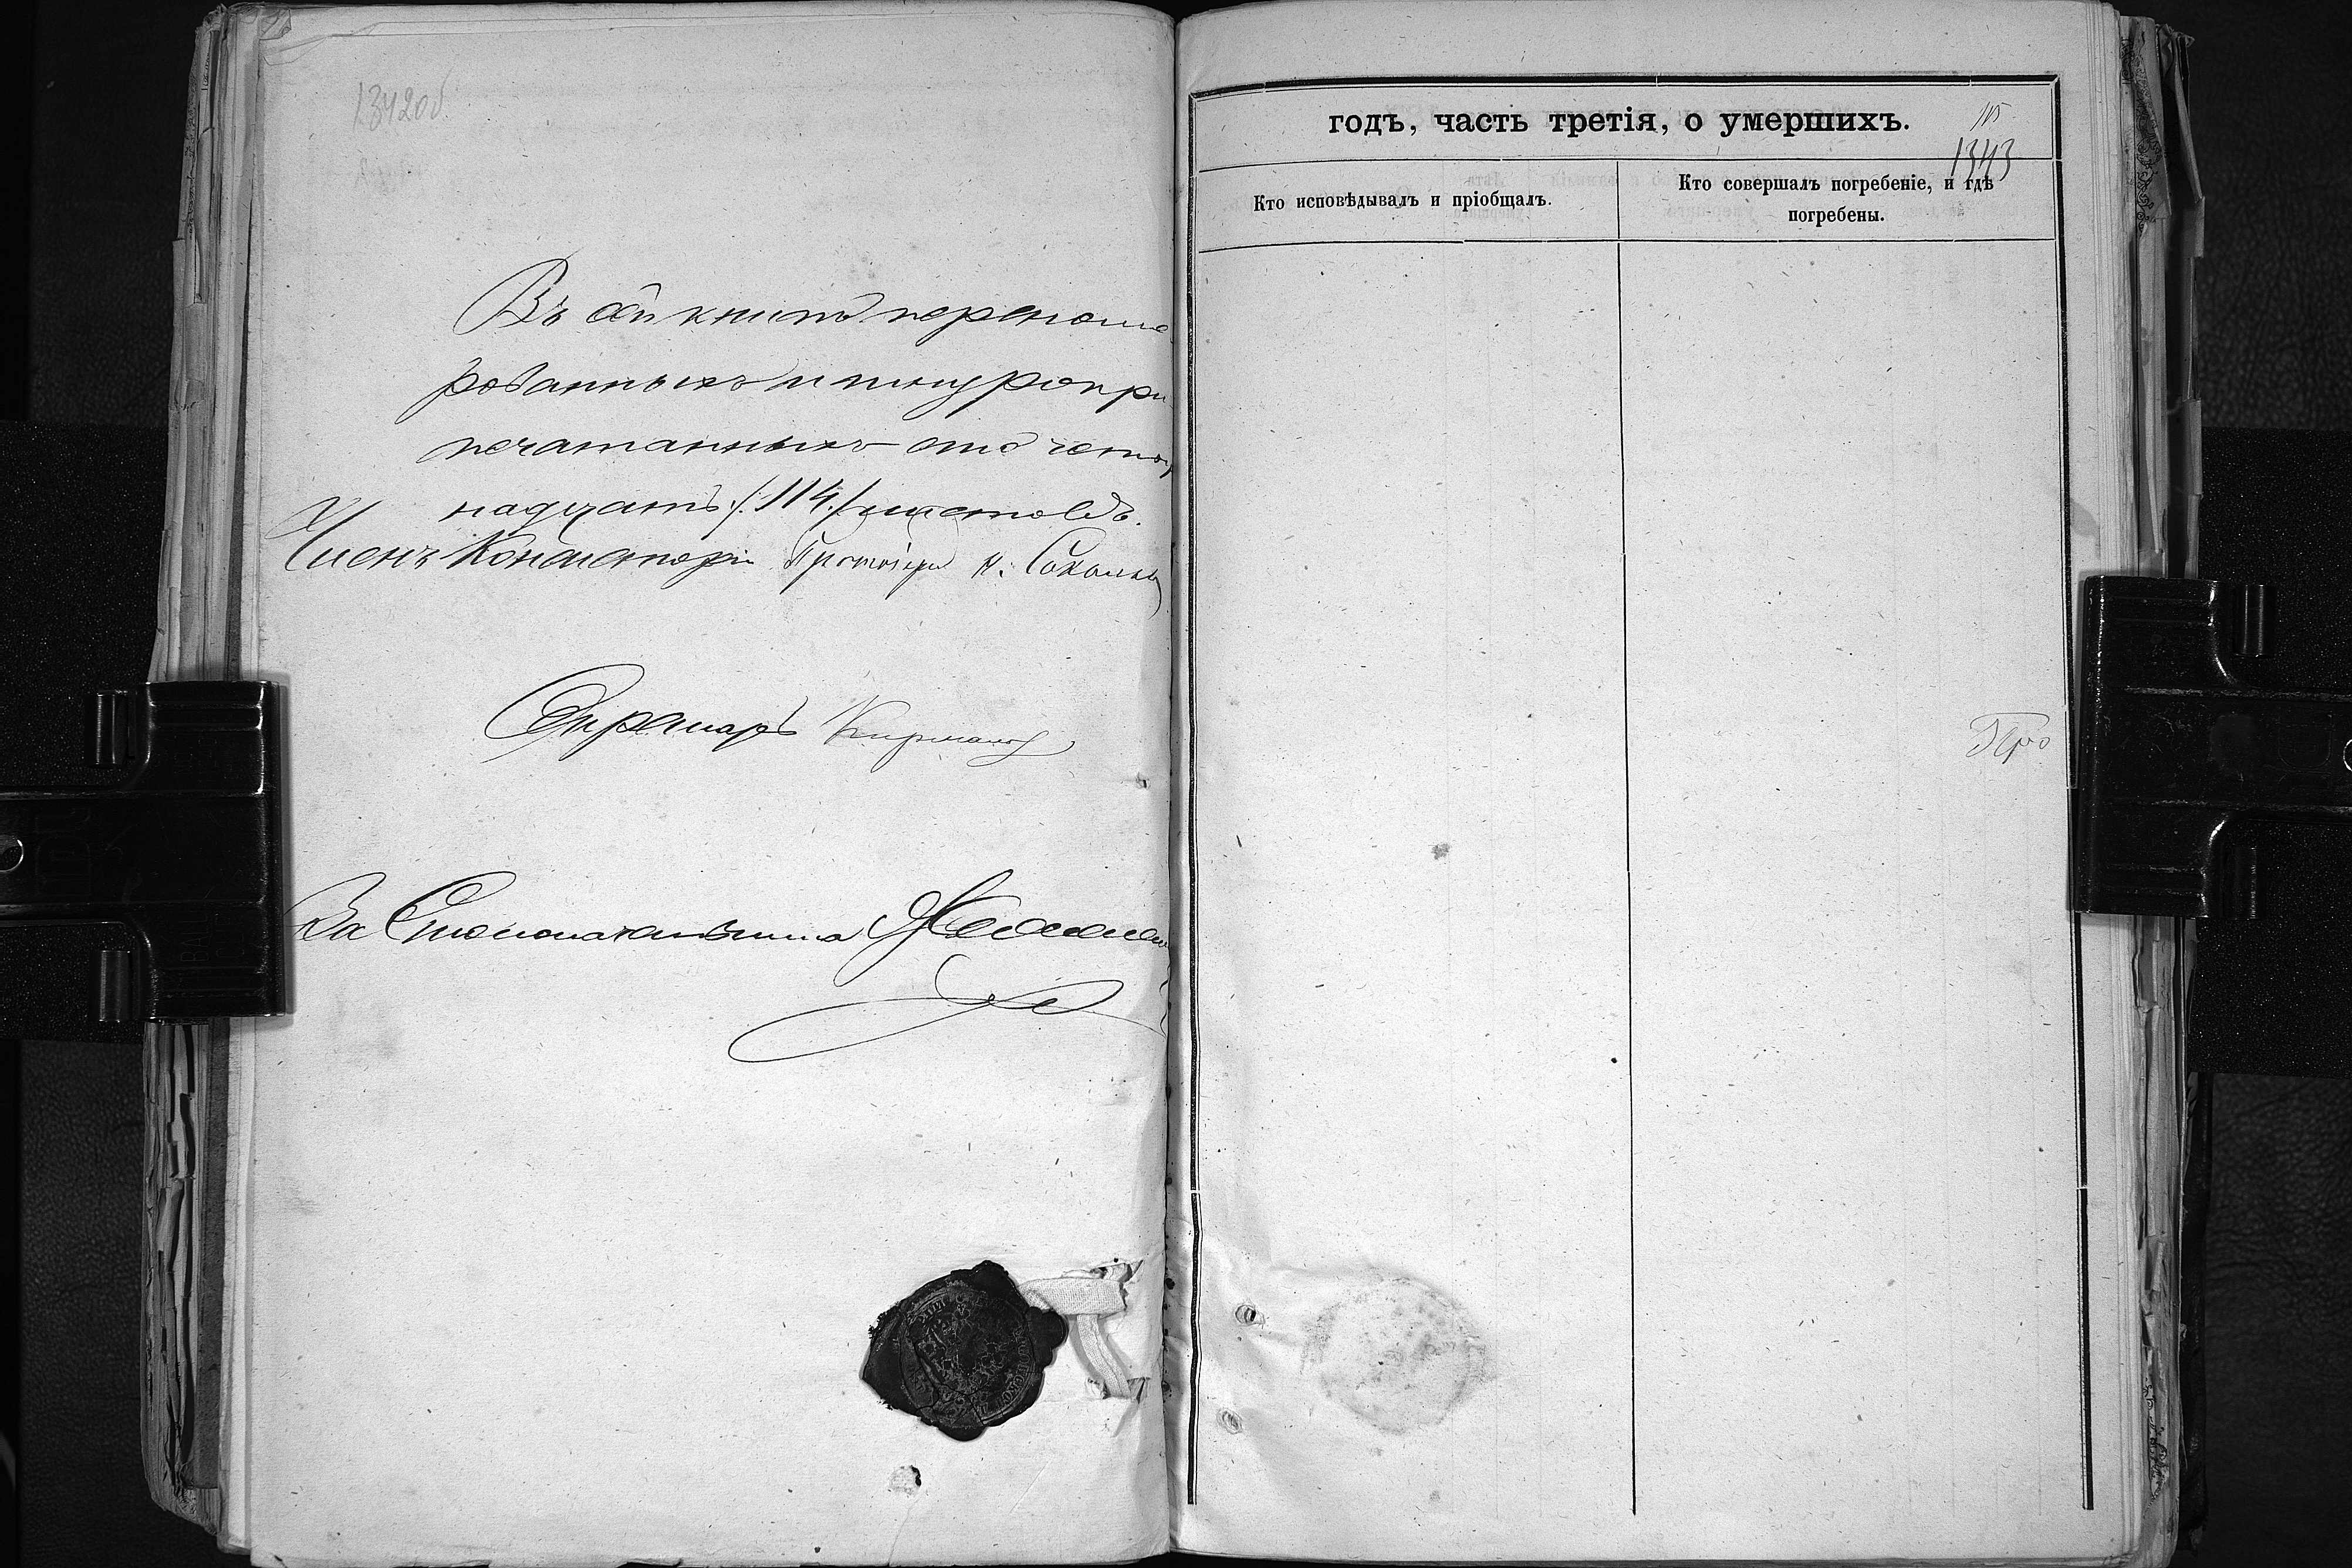 1342об.
Въ сей книгѣ перенуме
рованныхъ и шнуропри
печатанныхъ сто четыр
надцать /.114./ листовъ.
Членъ Консисторіи Протоіерей Н. Соколовъ
Секретарь
За Столоначальника
годъ, часть третія, о умершихъ.
115
1343
Кто исповѣдывалъ и пріобщалъ.
Кто совершалъ погребеніе, и гдѣ
погребены.
Про